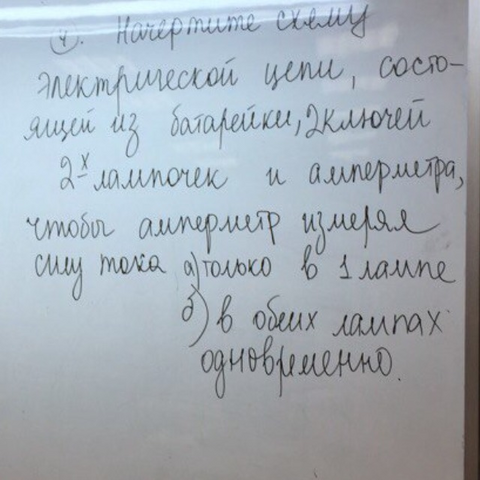 4). Начертите схему
электрической цепи, состо-
ящей из батарейки, 2 ключей
2х лампочек и амперметра,
чтобы амперметр измерял
силу тока а) только в 1 лампе
б) в обеих лампах
одновременно.